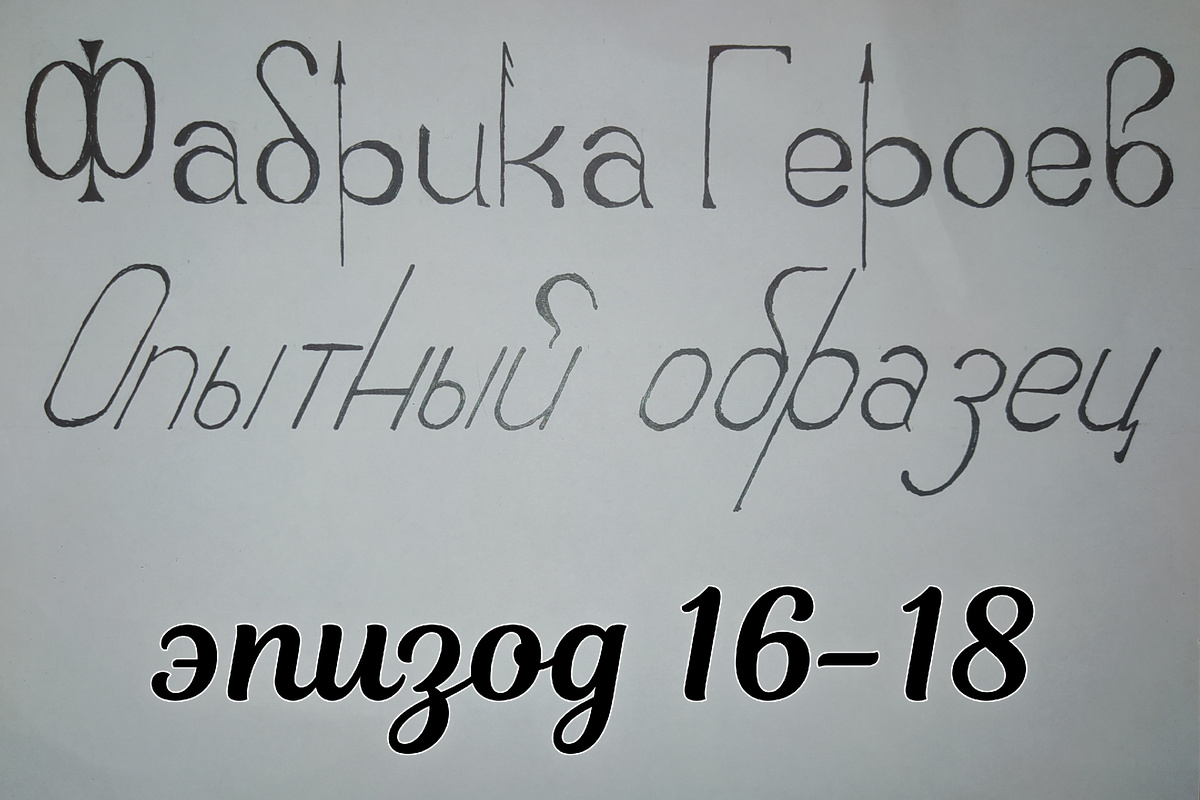 Фабрика Героев
Опытный образец
эпизод 16-18